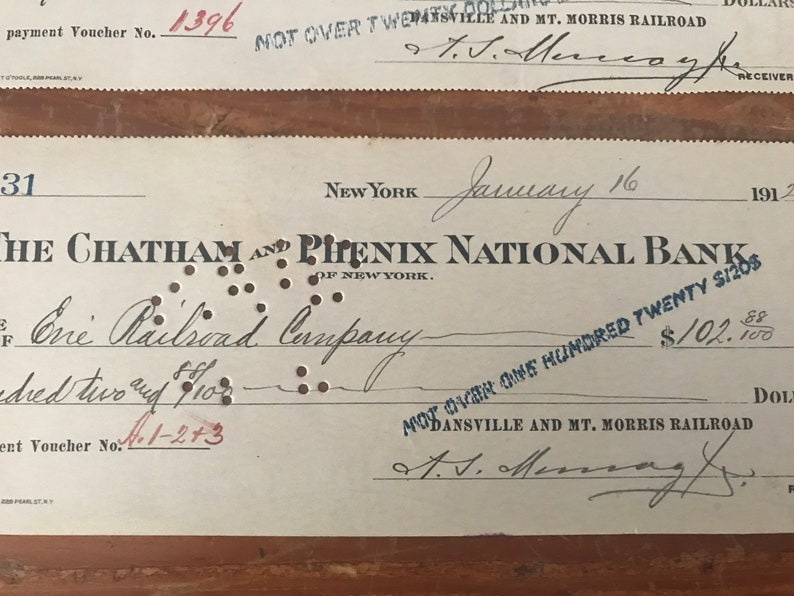 DOLLARS
payment Voucher No. 1396
NOT OVER TWENTY DOLLARS
DANSVILLE AND MT. MORRIS RAILROAD
RECEIVER
T O'TOOLE, 228 PEARL ST., N.Y.
31
NEW YORK January 16 1912
THE CHATHAM AND PHENIX NATIONAL BANK
OF NEW YORK.
Erie Railroad Company $102. 88/100
ndred two and 88/100 DOLL
NOT OVER ONE HUNDRED TWENTY $120$
DANSVILLE AND MT. MORRIS RAILROAD
ent Voucher No. A. 1-2+3
228 PEARL ST., N.Y.